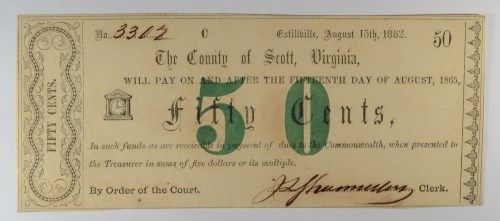 No. 3302 C Estillville, August 15th, 1862. 50
The County of Scott, Virginia,
WILL PAY ON AND AFTER THE FIFTEENTH DAY OF AUGUST, 1865,
FIFTY CENTS.
Fifty Cents,
50
In such funds as are receivable in payment of dues to the Commonwealth, when presented to
the Treasurer in sums of five dollars or its multiple.
By Order of the Court. Clerk.